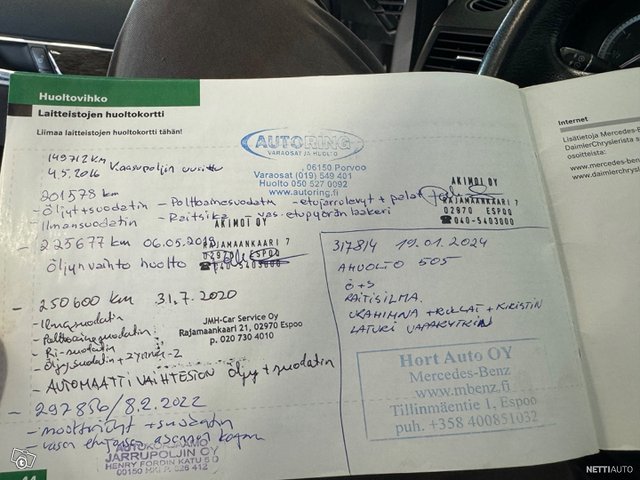 Huoltovihko
Laitteistojen huoltokortti
Liimaa laitteistojen huoltokortti tähän!
149712 km
4.5.2016 Kaasupoljin uusittu
AUTORING
VARAOSAT JA HUOLTO
06150 Porvoo
Varaosat (019) 549 401
Huolto 050 527 0092
www.autoring.fi
201578 km
- Öljyt+suodatin - Polttoainesuodatin - etujarrolevyt + palat
- Ilmansuodatin - Raitisilma - vas. etupyörän laakeri
AKIMOI OY
RAJAMAANKAARI 7
02970 ESPOO
☎040-5403000
- 225677 km 06.05.2019
Öljynvaihto huolto
AKIMOI OY
RAJAMAANKAARI 7
02970 ESPOO
☎040-5403000
- 250600 km 31.7.2020
- Ilmasuodatin
- Polttoainesuodatin
- Ri-suodatin
- Öljysuodatin +
JMH-Car Service Oy
Rajamaankaari 21, 02970 Espoo
p. 020 730 4010
- AUTOMAATTI VAIHTEISTON öljy + suodatin
- 297856/8.2.2022
- moottoriöljyt + suodatin
- vasen
AUTOKORJAAMO
JARRUPOLJIN OY
HENRY FORDIN KATU 5 O
00150 HKI P. 626 412
317814 19.01.2024
AHUOLTO 505
Ö+S
RAITISILMA.
URAHIHNA + RULLAT + KIRISTIN
LATURI VAPAAKYTKIN
Hort Auto OY
Mercedes-Benz
www.mbenz.fi
Tillinmäentie 1, Espoo
puh. +358 400851032
Internet
Lisätietoja Mercedes-
DaimlerChryslerista s
osoitteista:
www.mercedes-
www.daimlerchrysle
44
NETTIAUTO